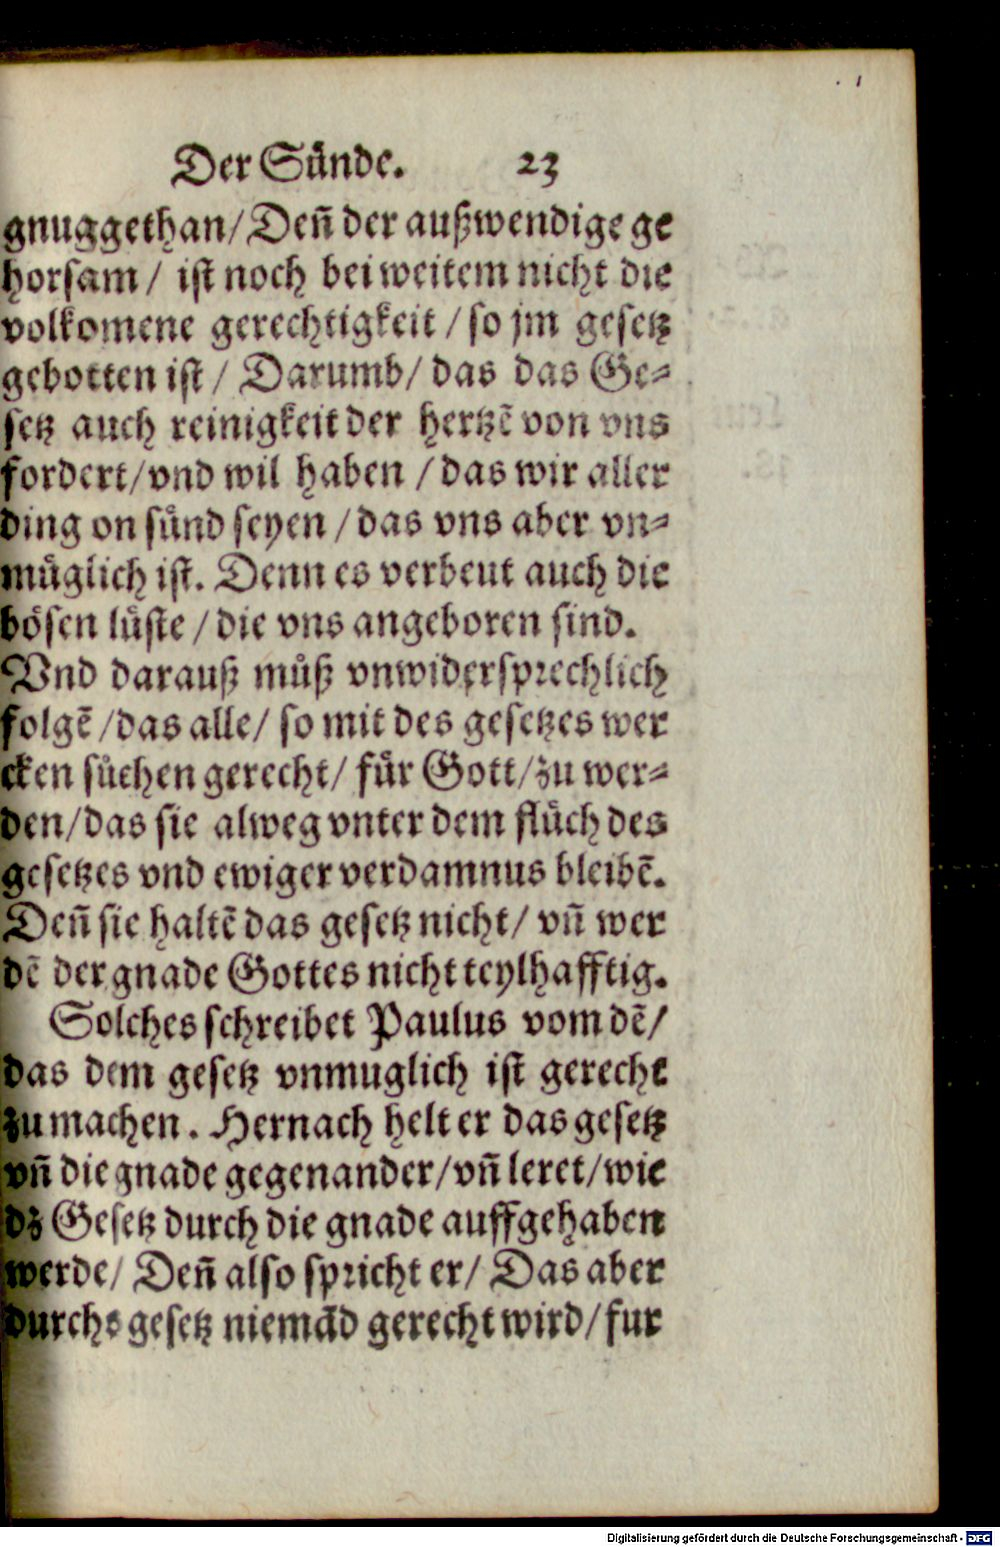 Der Sünde. 23
gnuggethan/ Deñ der außwendige ge
horsam / ist noch bei weitem nicht die
volkomene gerechtigkeit / so jm gesetz
gebotten ist / Darumb/ das das Ge⸗
setz auch reinigkeit der hertzẽ von vns
fordert/ vnd wil haben / das wir aller
ding on sünd seyen / das vns aber vn⸗
müglich ist. Denn es verbeut auch die
bösen lüste / die vns angeboren sind.
Vnd darauß můß vnwidersprechlich
folgẽ /das alle/ so mit des gesetzes wer
cken sůchen gerecht/ für Gott/ zu wer⸗
den/ das sie alweg vnter dem flůch des
gesetzes vnd ewiger verdamnus bleibẽ.
Deñ sie haltẽ das gesetz nicht/ vñ wer
dẽ der gnade Gottes nicht teylhafftig.
Solches schreibet Paulus vom dẽ/
das dem gesetz vnmuglich ist gerecht
zu machen. Hernach helt er das gesetz
vñ die gnade gegenander/ vñ leret/ wie
dz Gesetz durch die gnade auffgehaben
werde/ Deñ also spricht er/ Das aber
durchs gesetz niemãd gerecht wird/ fur
Digitalisierung gefördert durch die Deutsche Forschungsgemeinschaft - DFG